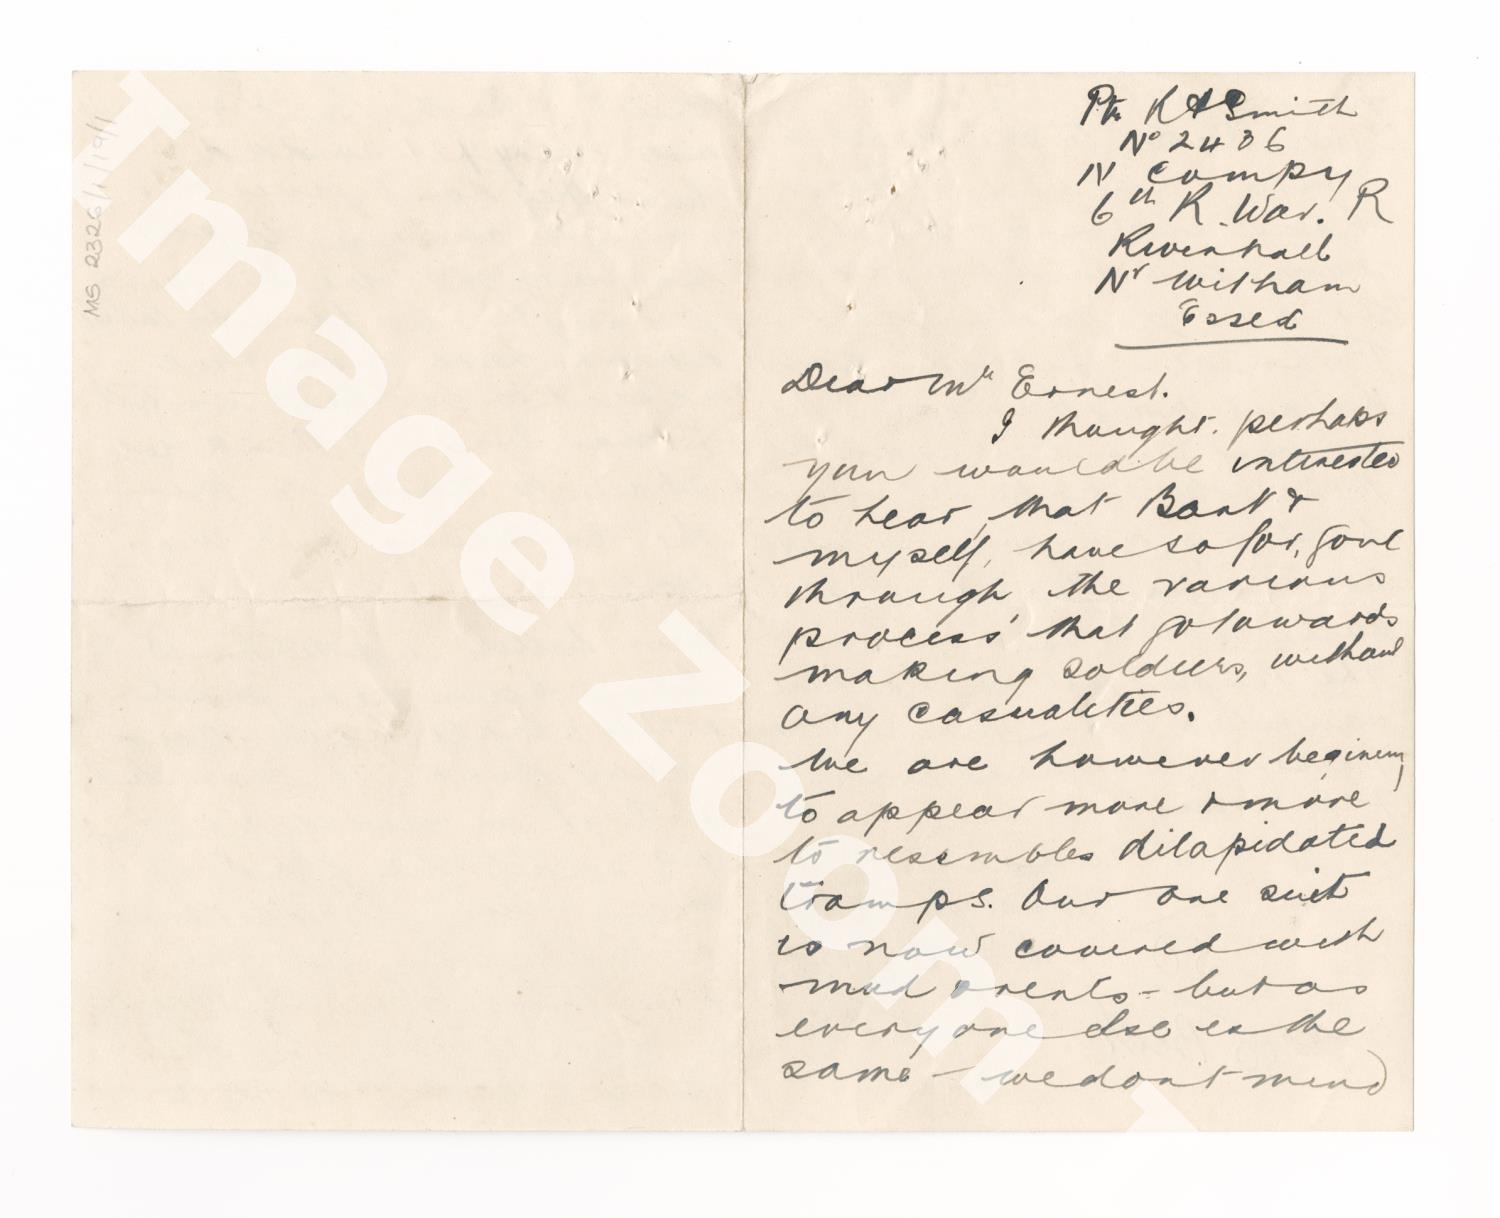 MS 2326/1/19/1
Pte K A Smith
No 2436
IV Compy
6th R. War. R
Rivenhall
Nr Witham
Essex
Dear Mr Ernest.
I thought. perhaps
you would be interested
to hear, that &
myself, have so far, gone
through, the various
process' that go towards
making soldiers, without
any casualities.
We are however begining
to appear more & more
to resembles dilapidated
tramps. Our one suit
is now covered with
mud & rents - but as
every one else is the
same - we dont mind
Image Zoom